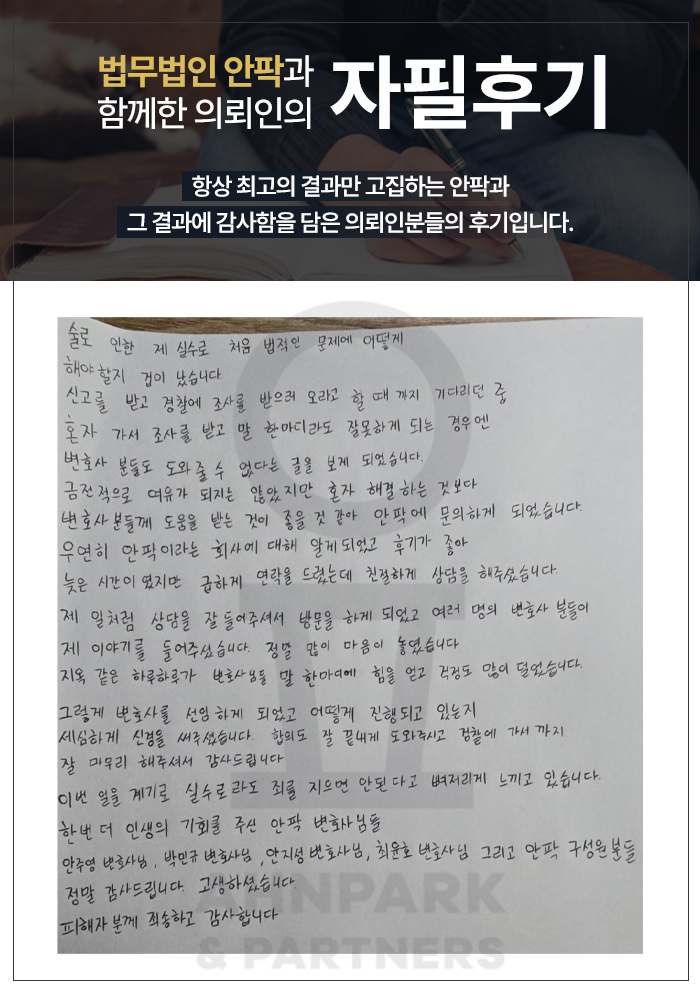 법무법인 안팍과
함께한 의뢰인의
자필후기
항상 최고의 결과만 고집하는 안팍과
그 결과에 감사함을 담은 의뢰인분들의 후기입니다.
술로 인한 제 실수로 처음 법적인 문제에 어떻게
해야할지 겁이 났습니다
신고를 받고 경찰에 조사를 받으러 오라고 할 때 까지 기다리던 중
혼자 가서 조사를 받고 말 한마디라도 잘못하게 되는 경우엔
변호사 분들도 도와줄 수 없다는 글을 보게 되었습니다.
금전적으로 여유가 되지는 않았지만 혼자 해결하는 것보다
변호사분들께 도움을 받는 것이 좋을 것 같아 안팍에 문의하게 되었습니다.
우연히 안팍이라는 회사에 대해 알게되었고 후기가 좋아
늦은 시간이였지만 급하게 연락을 드렸는데 친절하게 상담을 해주셨습니다.
제 일처럼 상담을 잘 들어주셔서 방문을 하게 되었고 여러 명의 변호사 분들이
제 이야기를 들어주셨습니다. 정말 많이 마음이 놓였습니다
지옥 같은 하루하루가 변호사님들 말 한마디에 힘을 얻고 걱정도 많이 덜었습니다.
그렇게 변호사를 선임하게 되었고 어떻게 진행되고 있는지
세심하게 신경을 써주셨습니다. 합의도 잘 끝내게 도와주시고 검찰에 가서 까지
잘 마무리 해주셔서 감사드립니다
이번 일을 계기로 실수로라도 죄를 지으면 안된다고 뼈저리게 느끼고 있습니다.
한번 더 인생의 기회를 주신 안팍 변호사님들
안주영 변호사님, 박민규 변호사님, 안지성 변호사님, 최윤호 변호사님 그리고 안팍 구성원분들
정말 감사드립니다. 고생하셨습니다.
피해자분께 죄송하고 감사합니다
AHNPARK
& PARTNERS